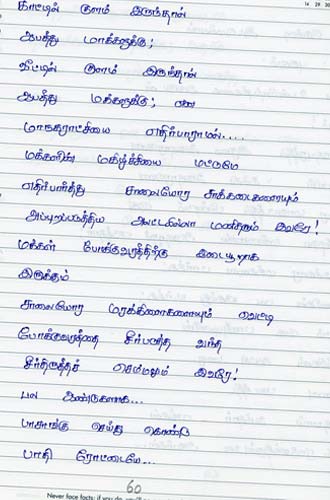 காட்டில் குளம் இருந்தால்
ஆபத்து மாக்களுக்கு;
வீட்டில் குளம் இருந்தால்
ஆபத்து மக்களுக்கு; என
மாநகராட்சியை எதிர்பாராமல்....
மக்களின் மகிழ்ச்சியை மட்டுமே
எதிர்பார்த்து சாலையோர சாக்கடைகளையும்
அப்புறப்படுத்திய அலட்டலில்லா மனிதரும் இவரே!
மக்கள் போக்குவரத்திற்கு இடையூறாக
இருக்கும்
சாலையோர மரக்கிளைகளையும் வெட்டி
போக்குவரத்தை சீர்படுத்த வந்த
சீர்திருத்தச் செம்மலும் இவரே!
பல ஆண்டுகளாக...
பாசாங்கு செய்து கொண்டு
பாதி ரோட்டையே...
60
Never face facts; if you do,
14 29 30